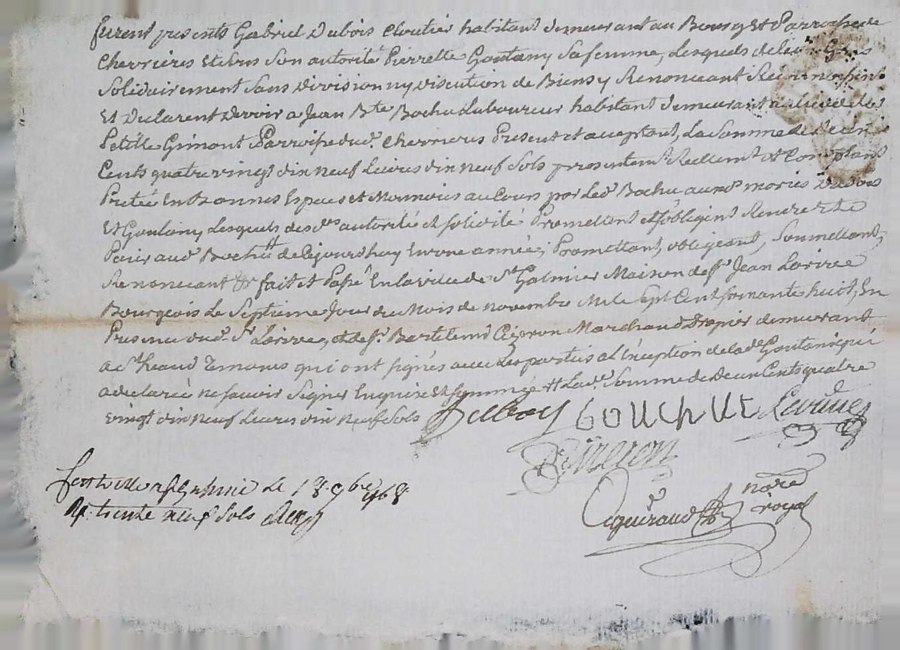 furent présents Gabriel Dubois Cloutier habitant demeurant au Bourg et Parroisse de
Chevrières et sous son autorité Pierrette Goutany sa femme, Lesquels de leur Gré
Solidairement Sans Division ny Discution de Biens y Renonceant
Et Declarent Devoir a Jean Bte Bochu Laboureur habitant demeurant au lieu de
Petitte Gimont Parroisse dud. Chevrieres Present et acceptant, La Somme de deux
Cents quatre vingt dix neuf Livres dix neuf Sols presentemt Reellemt et Comptant
Pretée En Bonnes Espèces et Monnoies au Cours par Led. Bochu auxds mariés Dubois
Et Goutany Lesquels des. autorité et solidité Promettent et s'obligent Rendre et
Paier aud. Bochu de Cejourdhuy En une année, Promettant, obligeant, Soumettant,
Renonceant &c fait et Passé En la ville de St Galmier Maison de Sr. Jean Larive
Bourgeois Le Septieme Jour du Mois de novembre Mil Sept Cent soixante huit, En
Presence dud. Sr. Larive, et de Sr. Bartelemi Peyron Marchand Drapier demeurant
a St. temoins qui ont signés avec Les parties a L'exception de lad. Goutani qui
a declarée ne savoir Signer Enquise et sommée Lad. Somme de deux Cents quatre
vingt dix neuf Livres dix neuf sols Duboy bouchut Larive
Peireron
notre
royal
le 18 9bre 1768
R. trente neuf sols